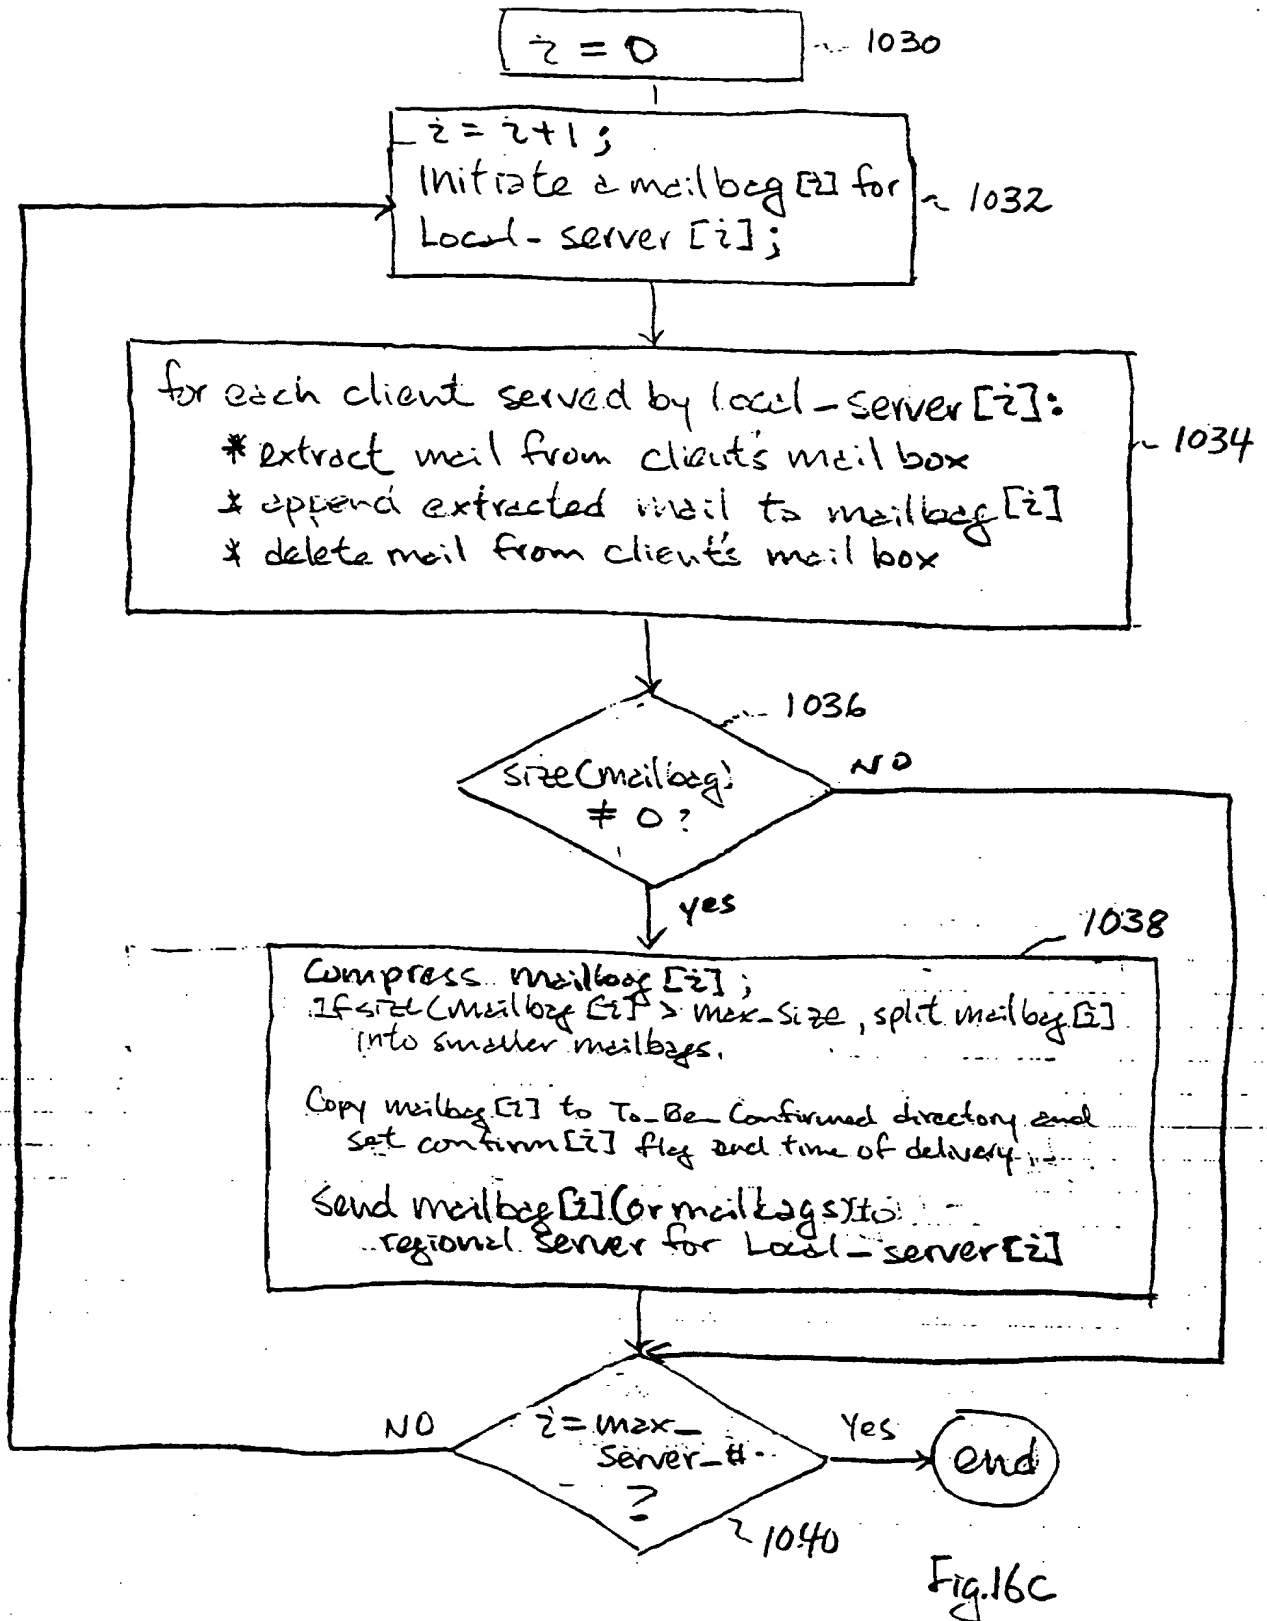 i = 0
1030
i = i+1 ;
Initiate a mailbag [i] for
Local-server [i] ;
1032
for each client served by local-server [i]:
* extract mail from client's mail box
* append extracted mail to mailbag [i]
* delete mail from client's mail box
1034
1036
size(mailbag)
≠ 0 ?
NO
yes
1038
Compress mailbag [i] ;
If size(mailbag [i]) > max_size, split mailbag [i]
into smaller mailbags.
Copy mailbag [i] to To_Be_Confirmed directory and
set confirm [i] flag and time of delivery.
Send mailbag [i] (or mailbags) to
regional server for Local-server [i]
NO
i = max_
server_#
?
Yes
end
1040
Fig.16C